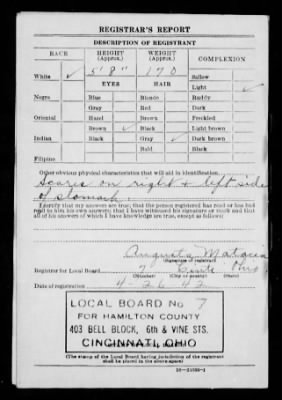 REGISTRAR'S REPORT
DESCRIPTION OF REGISTRANT
RACE
HEIGHT
(Approx.)
WEIGHT
(Approx.)
COMPLEXION
White ✓
5' 8"
170
Sallow
EYES
HAIR
Light ✓
Negro
Blue
Blonde
Ruddy
Gray
Red
Dark
Oriental
Hazel
Brown
Freckled
Brown ✓
Black
Light brown
Indian
Black
Gray ✓
Dark brown
Bald
Black
Filipino
Other obvious physical characteristics that will aid in identification
Scares on right + left side
of stomach.
I certify that my answers are true; that the person registered has read or has had
read to him his own answers; that I have witnessed his signature or mark and that
all of his answers of which I have knowledge are true, except as follows:
Augusta
(Signature of registrar)
Registrar for Local Board 7 Ohio
(Number) (City or county) (State)
Date of registration 4-26-42
LOCAL BOARD No 7
FOR HAMILTON COUNTY
403 BELL BLOCK, 6th & VINE STS.
CINCINNATI, OHIO
(The stamp of the Local Board having jurisdiction of the registrant
shall be placed in the above space)